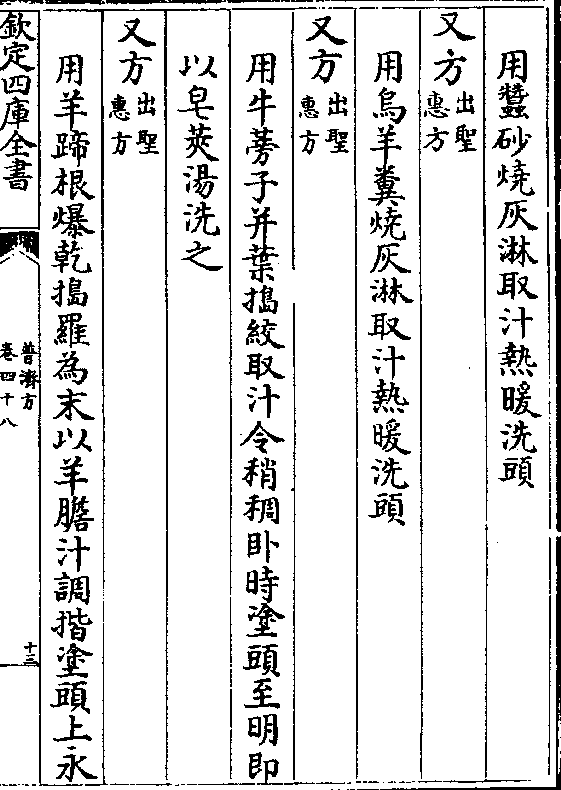 用蠶砂燒灰淋取汁熱暖洗頭
又方出聖惠方
用烏羊糞燒灰淋取汁熱暖洗頭
又方出聖惠方
用牛蒡子并葉搗絞取汁令稍稠卧時塗頭至明即
以皂莢湯洗之
又方出聖惠方
用羊蹄根爆乾搗羅為末以羊膽汁調揩塗頭上永
欽定四庫全書
普濟方
卷四十八
十三